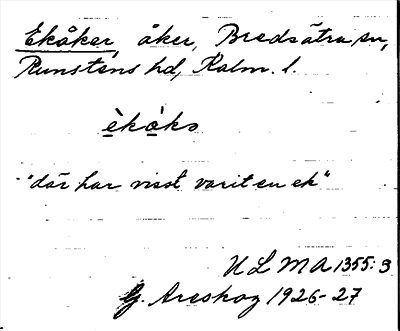 Ekåker, åker, Bredsätra sn,
Runstens hd, Kalm. l.
èkàkɘ
"där har visst varit en ek"
ULMA 1355:3
G. Areskog 1926-27